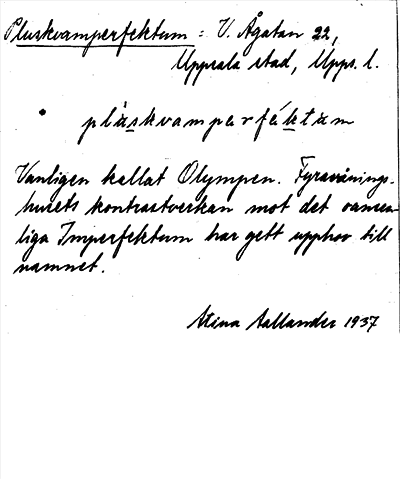 Pluskvamperfektum : V. Ågatan 22,
Uppsala stad, Upps. l.
• plùskvamperfáktum
Vanligen kallat Olympen. Fyravånings-
husets kontrastverkan mot det oansen-
liga Imperfektum har gett upphov till
namnet.
Stina Sallander 1937